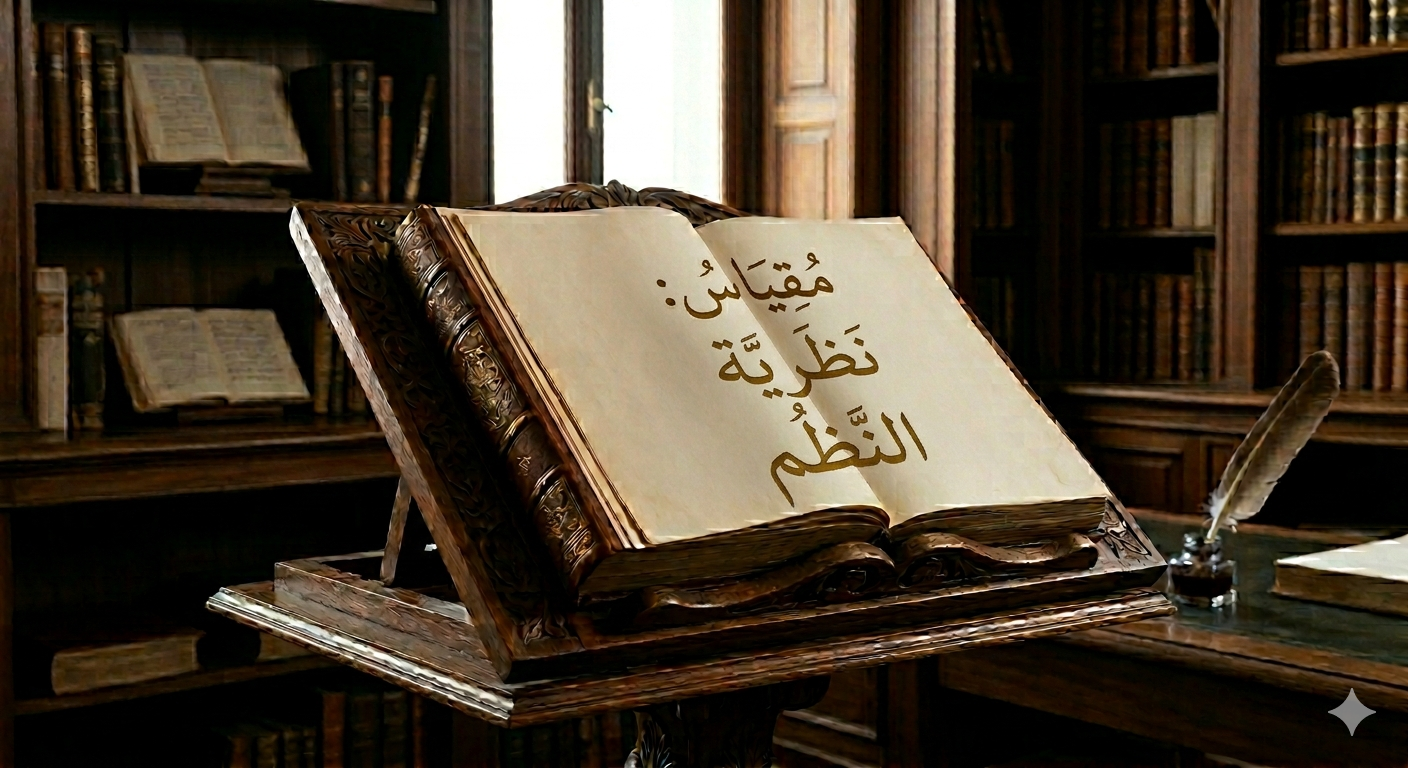 مُقِيَاسُ:
نَظَرِيَّة
النَّظُم